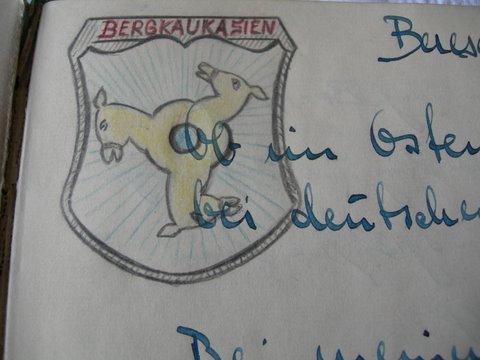 BERGKAUKASIEN
ob im Osten
bei deutsche
Bei